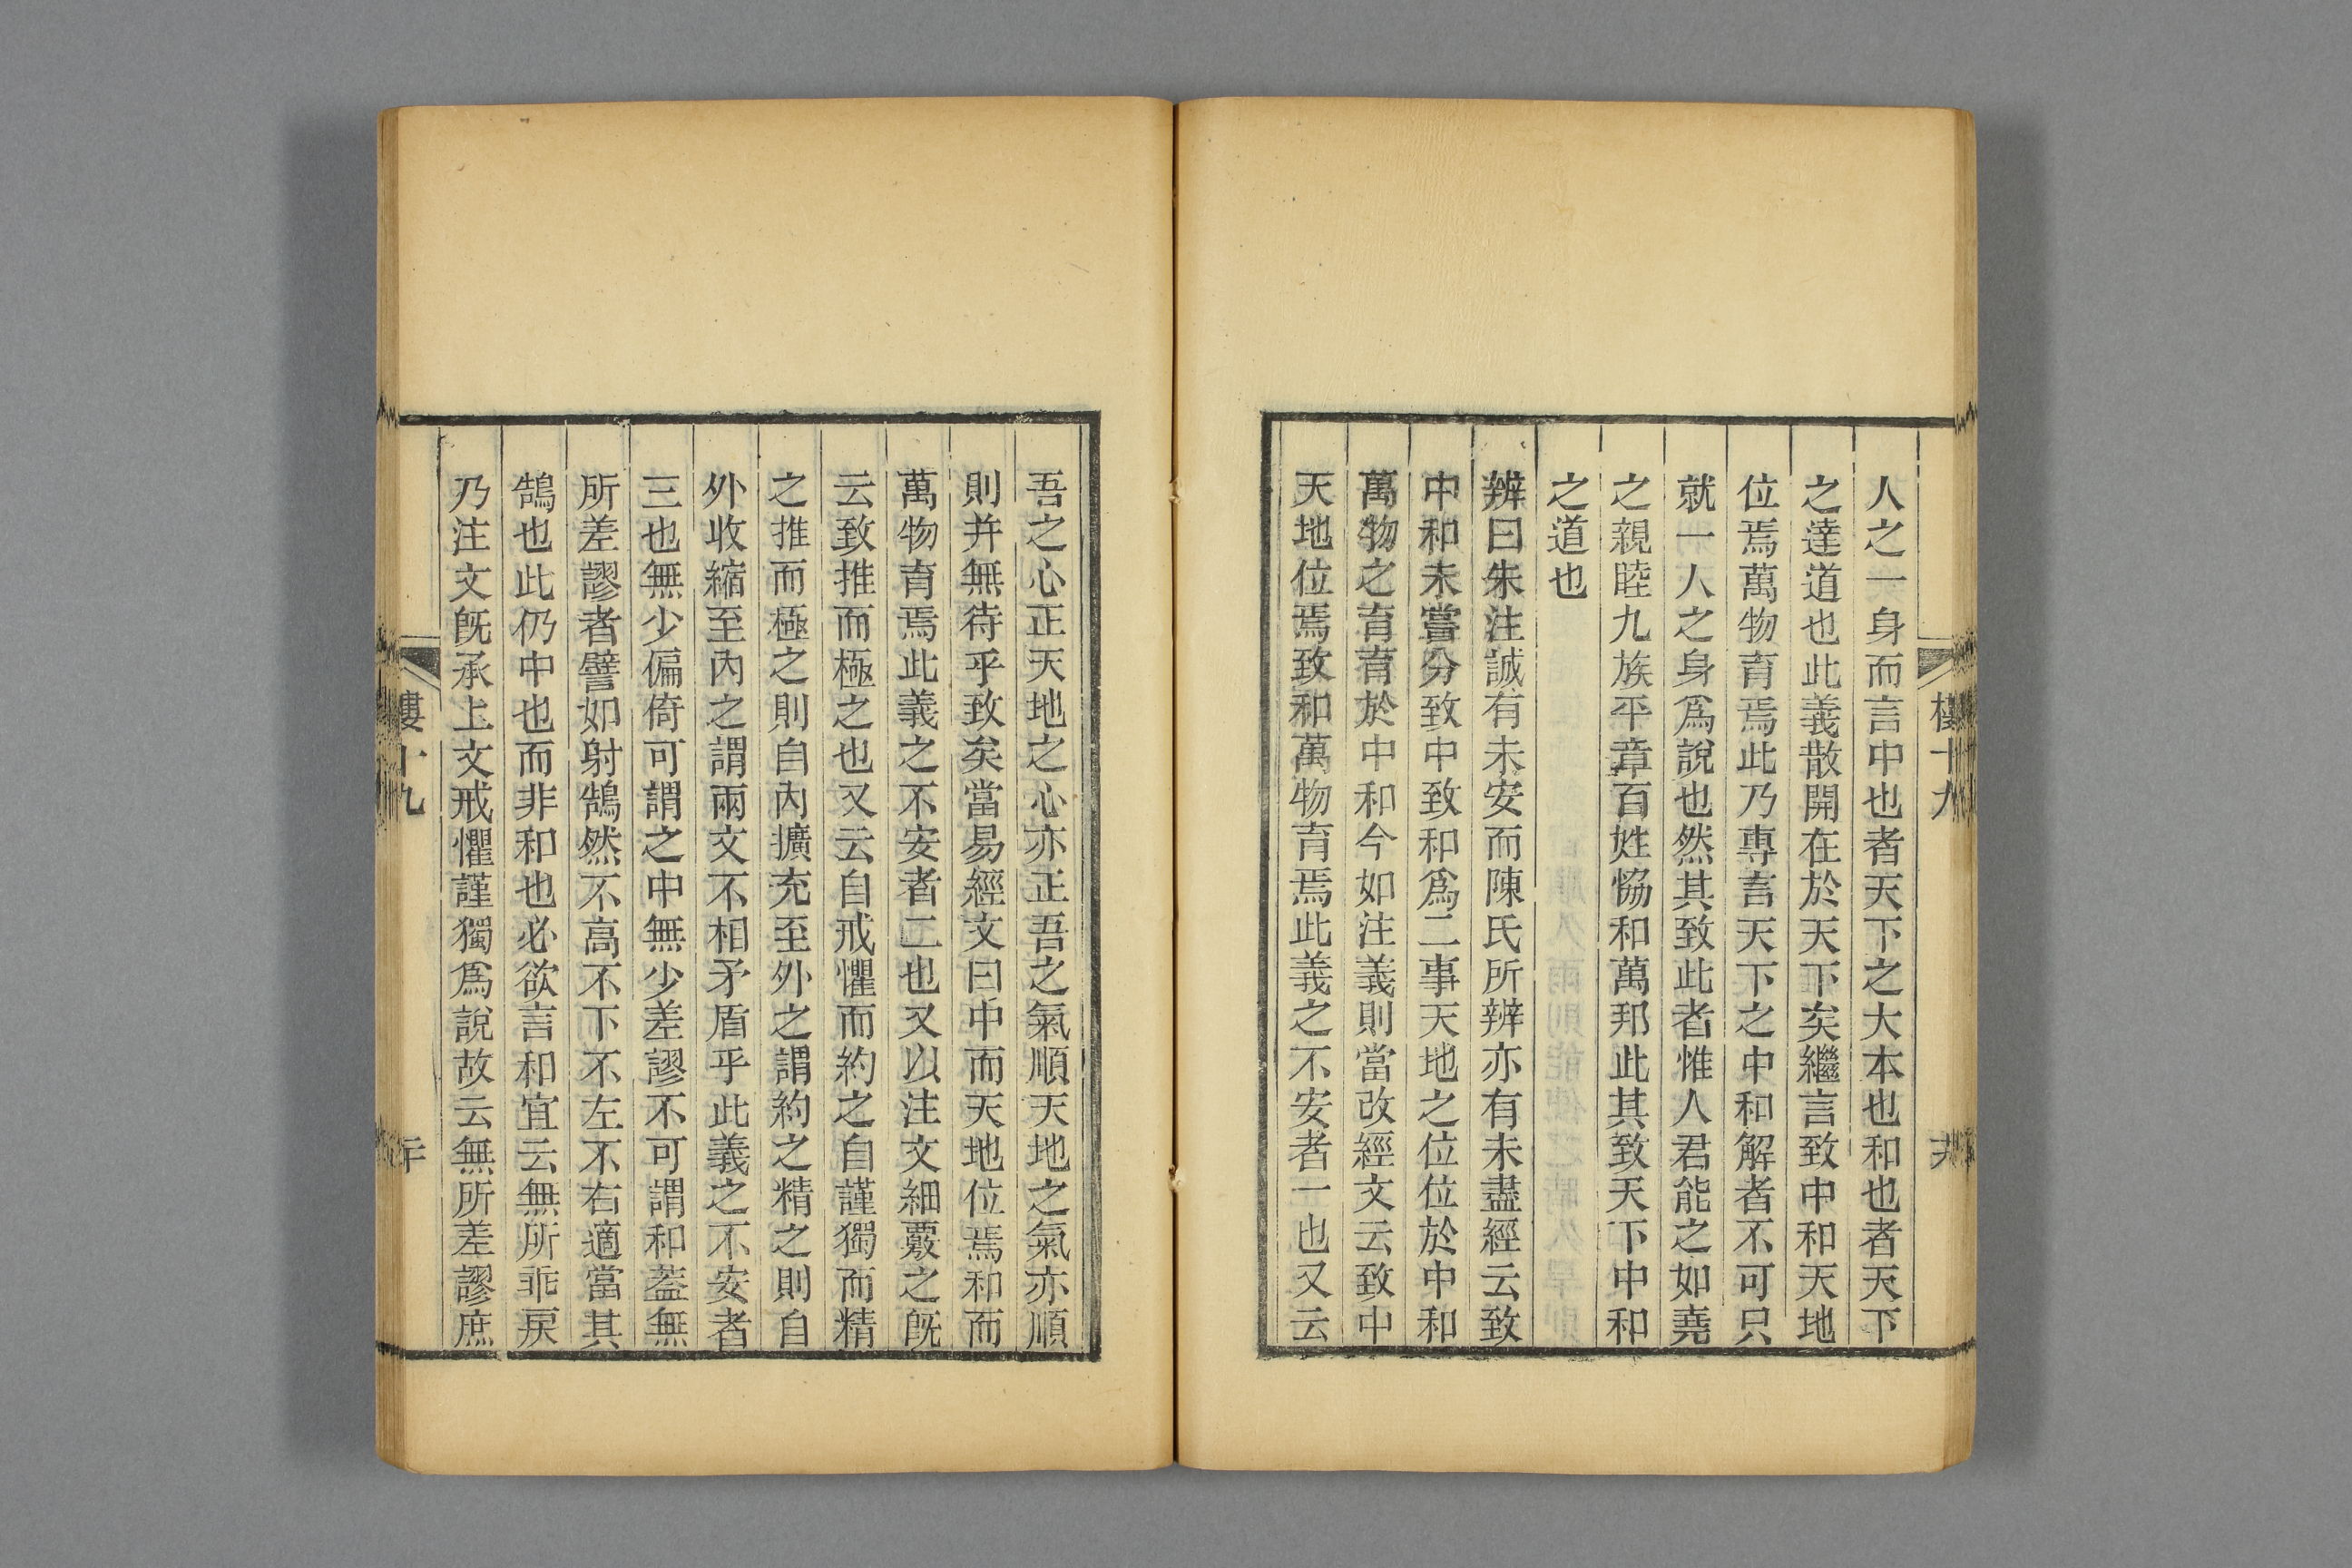 樓十九
人之一身而言中也者天下之大本也和也者天下
之達道也此義散開在於天下矣繼言致中和天地
位焉萬物育焉此乃專言天下之中和解者不可只
就一人之身爲說也然其致此者惟人君能之如堯
之親睦九族平章百姓恊和萬邦此其致天下中和
之道也
辨曰朱注誠有未安而陳氏所辨亦有未盡經云致
中和未嘗分致中致和爲二事天地之位位於中和
萬物之育育於中和今如注義則當改經文云致中
天地位焉致和萬物育焉此義之不安者一也又云
吾之心正天地之心亦正吾之氣順天地之氣亦順
則并無待乎致矣當易經文曰中而天地位焉和而
萬物育焉此義之不安者二也又以注文細覈之旣
云致推而極之也又云自戒懼而約之自謹獨而精
之推而極之則自內擴充至外之謂約之精之則自
外收縮至內之謂兩文不相矛盾乎此義之不安者
三也無少偏倚可謂之中無少差謬不可謂和葢無
所差謬者譬如射鵠然不高不下不左不右適當其
鵠也此仍中也而非和也必欲言和宜云無所乖戾
乃注文旣承上文戒懼謹獨爲說故云無所差謬庶
樓十九